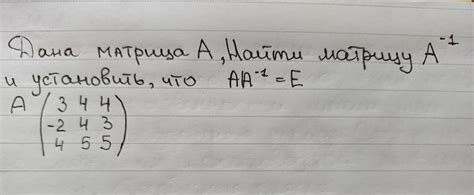 Дана матрица А, Найти матрицу А⁻¹
и установить, что АА⁻¹ = Е
А (3 4 4
-2 4 3
4 5 5)